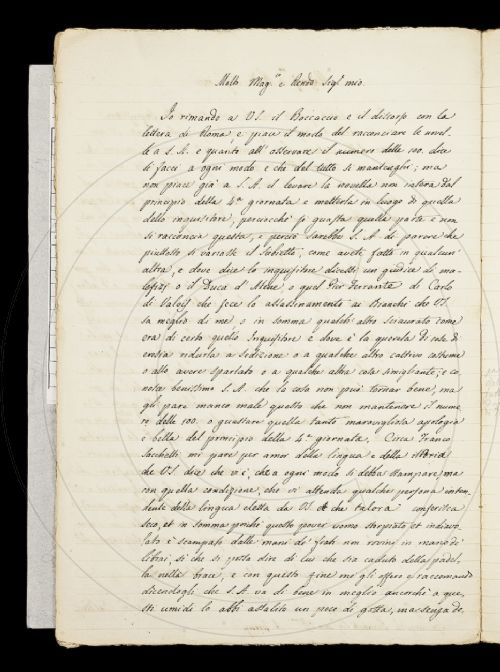 Molto Mag.co e Rendo Sig.r mio
Io rimando a VS. il Boccaccio e il discorso con la
lettera di Roma e piace il modo del racconciare le novel-
le a S. A. e quanto all' osservare il numero delle 100. dice
si facci a ogni modo e che del tutto si mantenghi; ma
non piace già a S. A. il levare la novella non intera dal
principio della 4a giornata e metterla in luogo di quella
dello inquisitore, perciocchè si guasta quella parte e non
si racconcia questa, e perciò sarebbe S. A. di parere che
piuttosto si variasse il subietto, come avete fatto in qualcun'
altra, e dove dice lo inquisitore dicessi un giudice di ma-
lefizj o il Duca d' Atene o quel Pier Ferrante di Carlo
di Valois che fece lo assassinamento ai Bianchi che VS.
sa meglio di me o in somma qualche altro sciaurato come
era di certo quello Inquisitore e dove è la querela di cose di
eresia ridurla a sedizione o a qualche altro cattivo costume
o allo avere sparlato o a qualche altra cosa simigliante; e co-
nosce benissimo S. A. che la cosa non può tornar bene, ma
gli pare manco male questo che non mantenere il nume-
ro delle 100. o guastare quella tanto maravigliosa apologia
e bella del principio della 4a giornata. Circa Franco
Sacchetti mi pare per amor della lingua e della istoria
che VS. dice che vi è, che a ogni modo si debba stampare, ma
con quella condizione, che vi attenda qualche persona inten-
dente della lingua eletta da VS. e che talora conferisca
seco, et in somma poichè questo pover uomo storpiato et indivo-
lato è scampato dalle mani de' frati non rovini in mano de'
librai, sì che si possa dire di lui che sia caduto della padel-
la nella brace, e con questo fine me gli offero e raccomando
dicendogli che S. A. va di bene in meglio ancorchè a que-
sti umidi lo abbi assalito un poco di gotta, ma senza do-